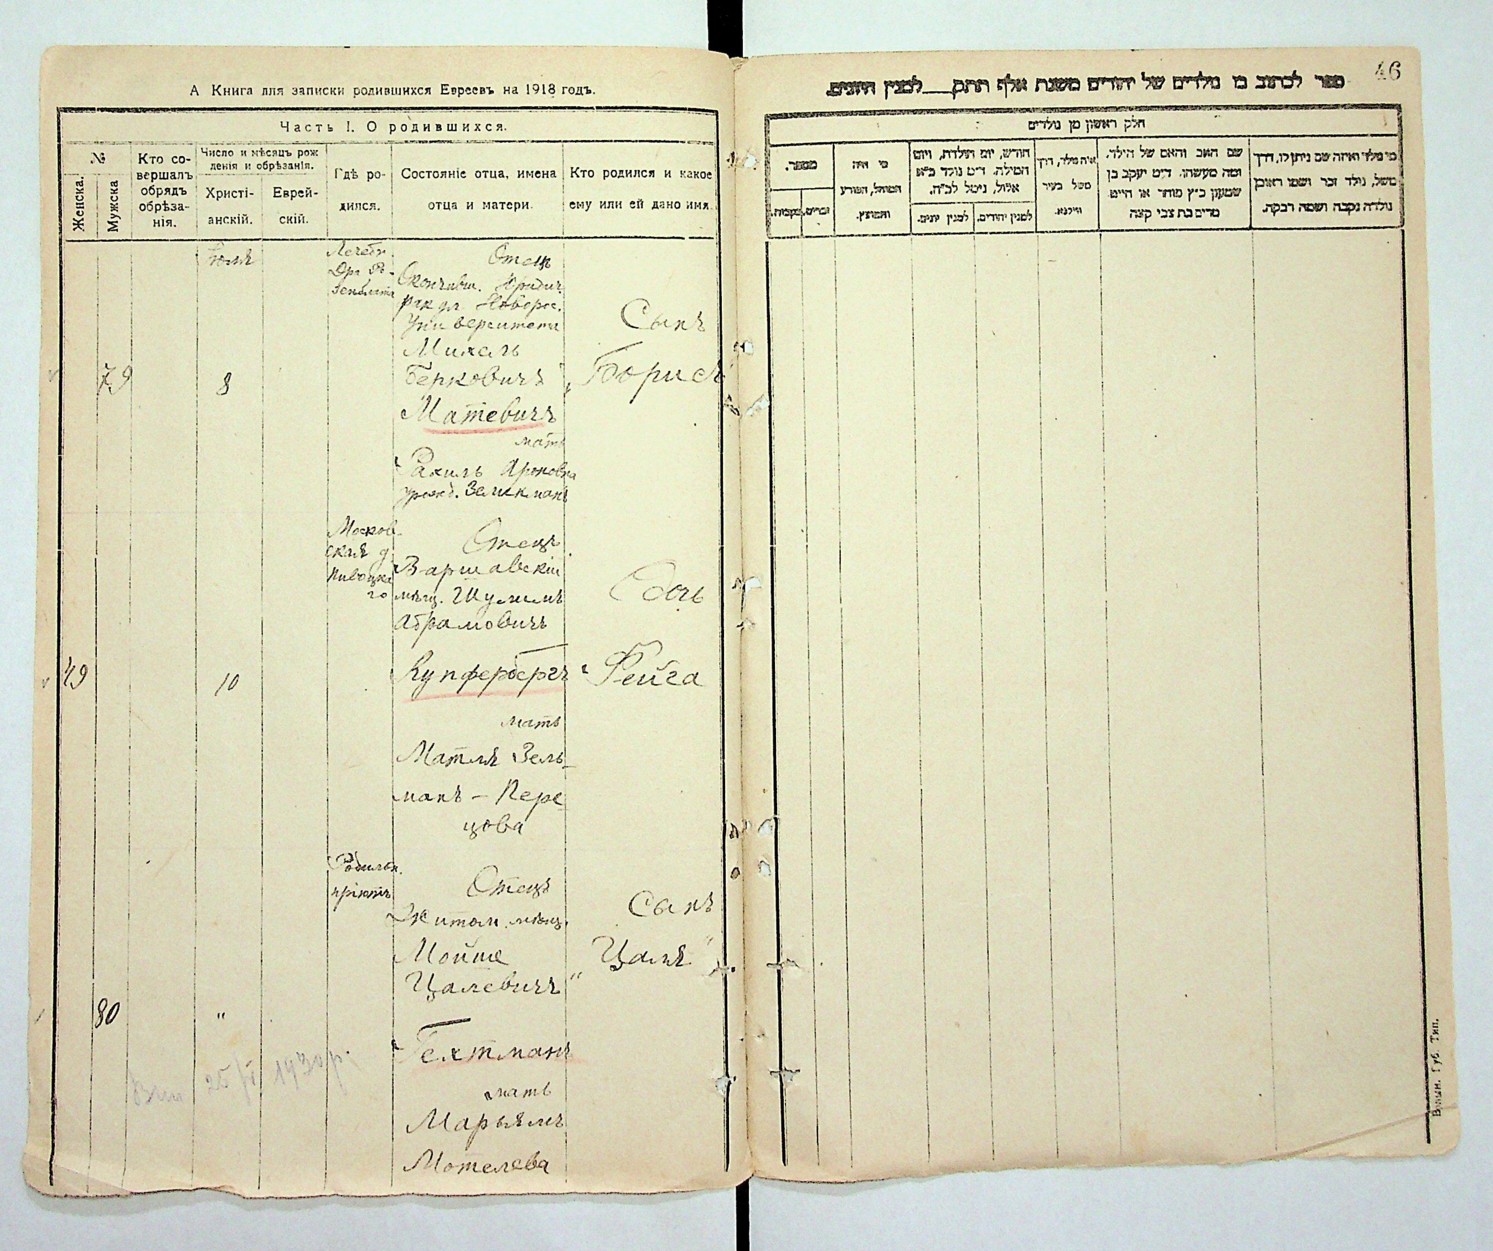 А Книга для записки родившихся Евреевъ на 1918 годъ.
Часть I. О родившихся.
№
Женска.
Мужска
Кто со-
вершалъ
обрядъ
обрѣза-
нія.
Число и мѣсяцъ рож
денія и обрѣзанія.
Христі-
анскій.
Еврей-
скій.
Гдѣ ро-
дился.
Состояніе отца, имена
отца и матери.
Кто родился и какое
ему или ей дано имя.
79
Юля
8
Лечебн.
Дра Ро-
зенблата
Отецъ
Окончивш. Юридич.
фак ул. Новорос.
Университета
Михель
Берковичъ
Матевичъ
мать
Рахиль Ароновна
урожд.
Сынъ
„Борисъ“
49
10
Москов-
ская
Отецъ
Варшавскій
мѣщ. Шулимъ
Абрамовичъ
Купфербергъ
мать
Матля Зель-
манъ-Пере
цова
Дочь
„Фейга
80
"
Родильн.
пріютъ
Отецъ
Житом. мѣщ.
Мойше
Цалевичъ
Гехтманъ
мать
Марьямъ
Мотелева
Сынъ
Цаля"
1930р.
46
ספר לכתוב בו נולדים של יהודים משנת אלף תתק___ למנין היונים.
חלק ראשון מן נולדים
מספר.
נקבות.
זכרים.
מי היה
המוהל, הפורע
והמוצץ.
חודש, יום הולדת, ויום
המילה. ד״מ נולד כ״א
אלול, נימול כ״ח.
למנין יונים.
למנין יהודים.
איה נולד, דרך
משל בעיר
ווילנא.
שם האב והאם של הילד.
ומה מעשהו. ד״מ יעקב בן
שמעון כ״ץ סוחר או חייט
מרים בת צבי קצה
מי נולד ואיזה שם ניתן לו, דרך
משל, נולד זכר ושמו ראובן
נולדה נקבה ושמה רבקה.
Волын. Губ. Тип.